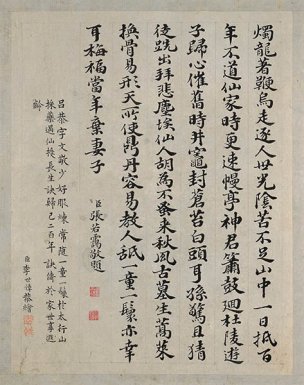 燭龍著鞭烏走逐人世光陰苦不足山中一日抵百
年不道仙家時更速幔亭神君簫鼓迴杜陵遊
子歸心催舊時井竈封蒼苔白頭耳孫驚且猜
徒跣出拜悲塵埃仙人胡為不蚤來秋風古墓生蒿萊
換骨易形天所使鼎丹容易教人舐一童一鬟亦幸
耳梅福當年棄妻子
臣張若靄敬題
呂恭字文敬少好服餌常隨一童一婢於太行山
採藥遇仙授長生訣歸已二百年訣傳於家世壽遐
齡
臣李世倬恭繪